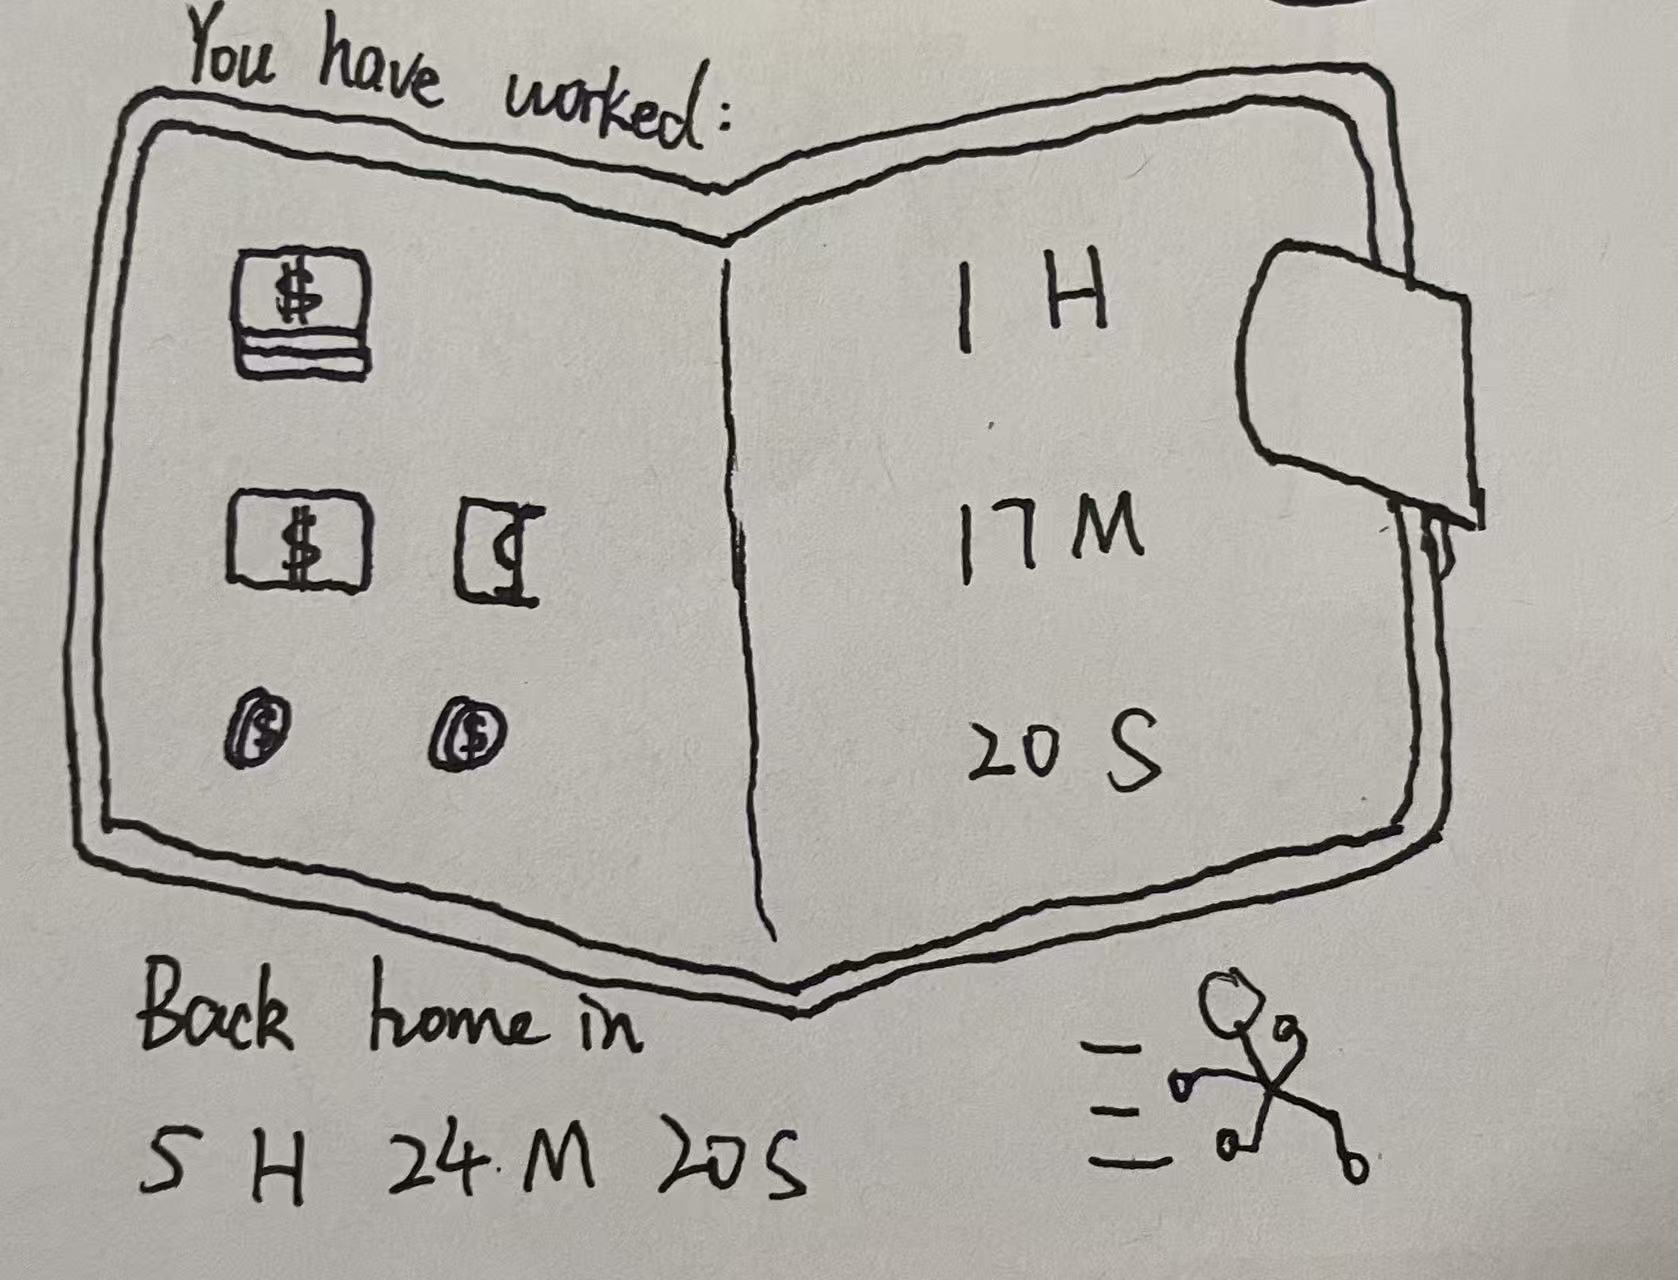 You have worked:
$ 1 H
$ $ 17 M
$ $ 20 S
Back home in
5 H 24 M 20 S